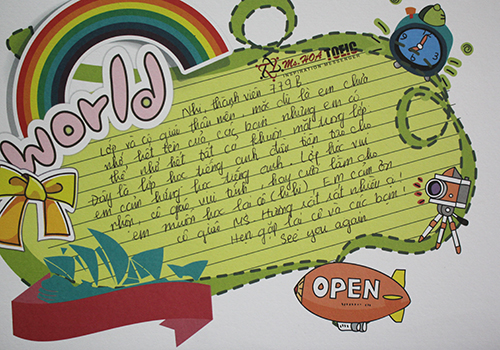 world
Ms.HOA TOEIC
INSPIRATION MESSENGER
Nhi, thành viên 779B
Lớp và cô giáo thân mến, mặc dù là em chưa
nhớ hết tên của các bạn nhưng em có
thể nhớ hết tất cả khuôn mặt trong lớp
Đây là lớp học tiếng anh đầu tiên tạo cho
em cảm hứng học tiếng anh. Lớp học vui
nhộn, cô giáo vui tính, hay cười làm cho
em muốn học lại cô (hihi). Em cảm ơn
cô giáo Ms Hương rất rất nhiều ạ!
Hẹn gặp lại cô và các bạn!
See you again
OPEN